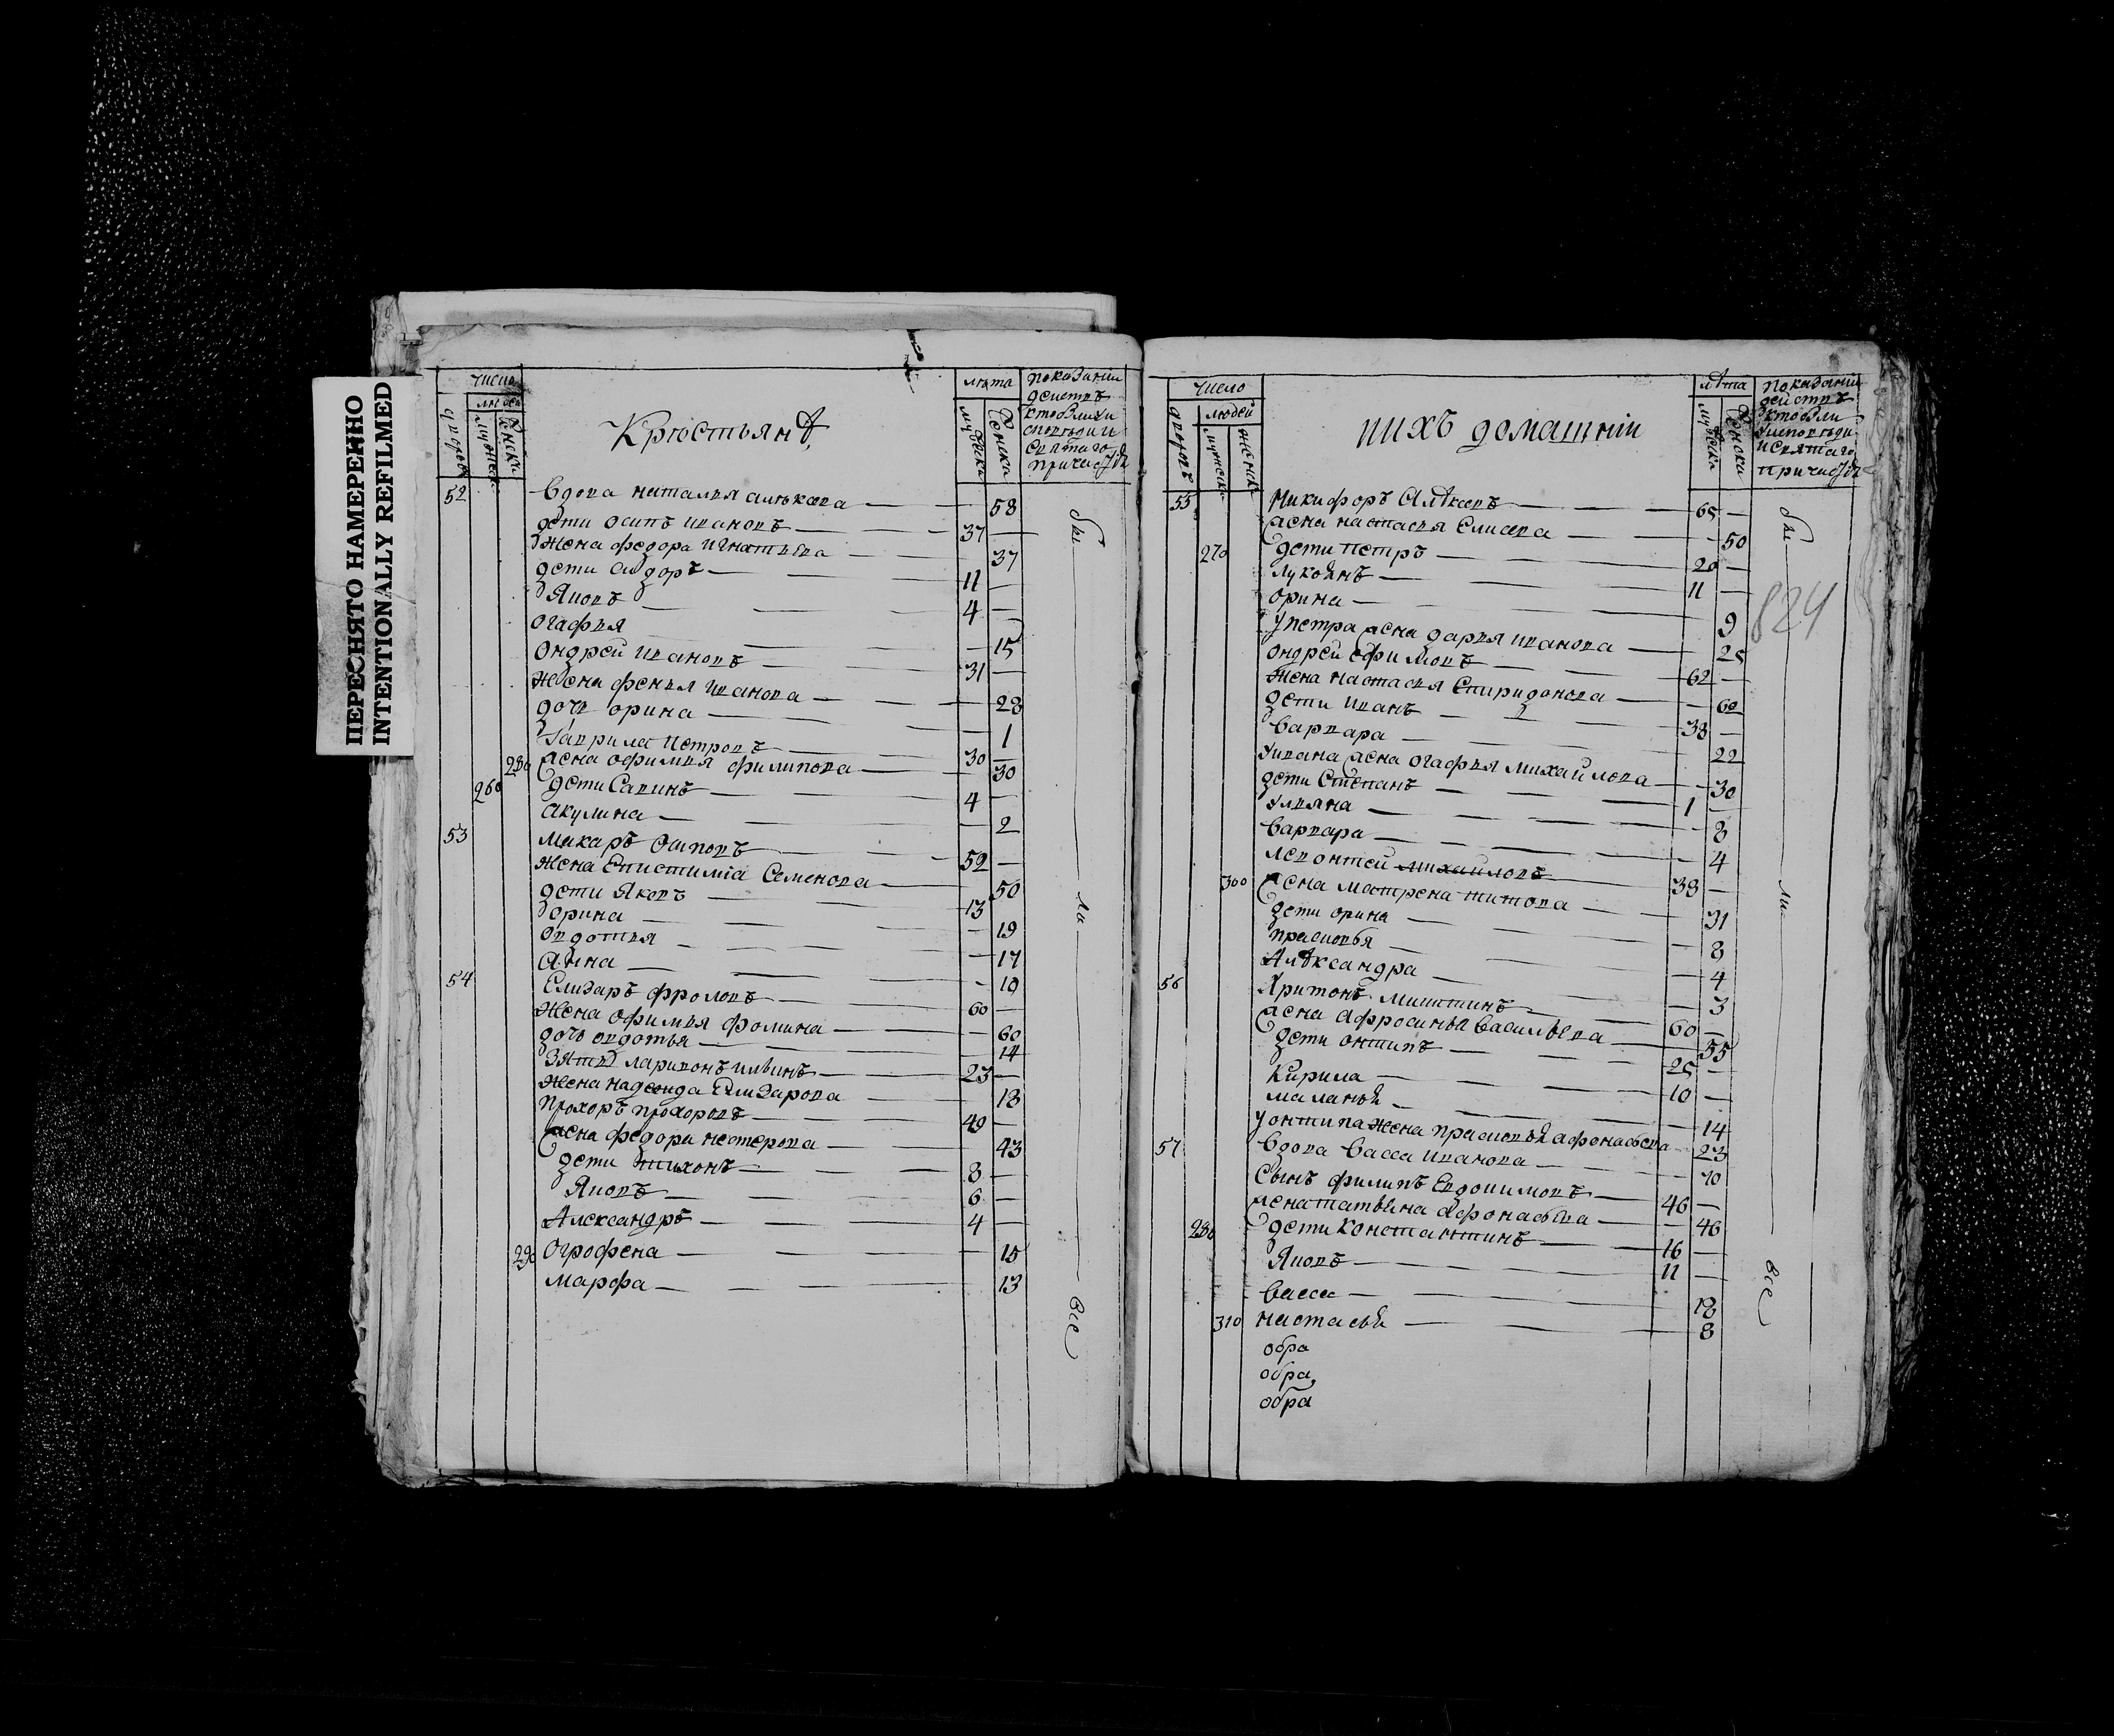 ПЕРЕСНЯТО НАМЕРЕННО
INTENTIONALLY REFILMED
число
людей
дворовъ
мужеска
женска
Крестьянѣ
лѣта
мужеска
женска
показании
действъ
кто былъ и
исповеди и
святаго
причастія
52 вдова наталья алѣксева — 58
дети осипъ ивановъ — 37 —
жена федора игнатьева — 37
дети сидоръ — 11 —
Яковъ — 4 —
огафья — 15
ондрей ивановъ — 31 —
жена фекла иванова — 28
дочь орина — 1
гаврила петровъ — 30
280 жена офимья филипова — 30
260 дети Савинъ — 4 —
акулина — 2
53 макаръ осиповъ — 52 —
жена Епистимiа Семенова — 50
дети Яковъ — 13
орина — 19
овдотья — 17
анна — 10
54 Елизаръ фроловъ — 60 —
жена офимья фомина — 60
дочь овдотья — 14
зять ларивонъ ильинъ — 23 —
жена надежда Елизарова — 18
прохоръ прохоровъ — 49 —
жена федора нестерова — 43
дети тихонъ — 8 —
Яковъ — 6 —
Александръ — 4 —
290 Огрофена — 15
марфа — 13
бы — ли — все
число
людей
дворовъ
мужеска
женска
ихъ домашнiи
лѣта
мужеска
женска
показании
действъ
кто были
у исповеди
и святаго
причастія
55 Никифоръ Алѣксевъ — 65 —
жена настасья Елисева — 50
270 дети петръ — 20 —
лукоянъ — 11 —
орина — 9
у петра жена дарья иванова — 25
ондрей ефимовъ — 62 —
жена настасья Спиридонова — 60
дети иванъ — 38 —
варвара — 22
у ивана жена огафья михайлова — 30
дети Степанъ — 1 —
ульяна — 8
варвара — 4
леонтей михайловъ — 38 —
300 жена матрена титова — 31
дети орина — 8
прасковья — 4
Алѣксандра — 3
56 Харитонъ микитинъ — 60 —
жена афросинья васильева — 55
дети онтипъ — 25 —
Кирила — 10 —
маланья — 14
у онтипа жена прасковья афонасьева — 23
57 вдова васса иванова — 70
сынъ филипъ Евдокимовъ — 46 —
жена татьяна афонасьева — 46
280 дети константинъ — 16 —
Яковъ — 11 —
васса — 18
310 настасья — 8
обра
обра
обра
824
бы — ли — все